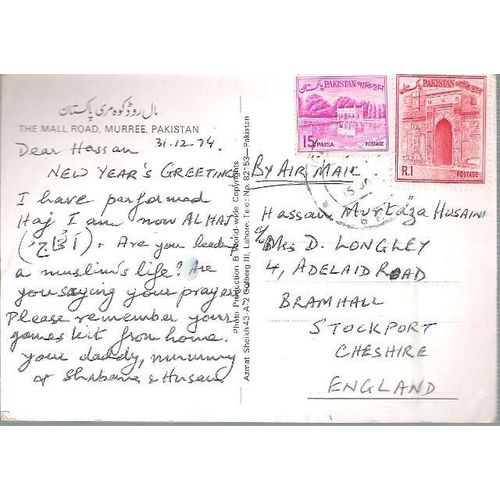 مال روڈ کوہ مری پاکستان
THE MALL ROAD, MURREE, PAKISTAN
Dear Hassan 31-12-74.
NEW YEAR'S GREETING
I have performed
Haj I am now ALHAJ
(الحاج). Are you leading
a muslim's life? Are
you saying your prayers
Please remember your
games kit from home.
your daddy, mummy
& Hussain
Photo Production & World-wide Copyrights
Azmat Sheikh 43-A-2 Gulberg III, Lahore, Tele: No. 82153—Pakistan
پاکستان PAKISTAN
15 PAISA POSTAGE
پاکستان PAKISTAN
R.1 POSTAGE
BY AIR MAIL
Hassan Murtaza HUSAINI
c/o Mrs D. LONGLEY
4, ADELAID ROAD
BRAMHALL
STOCKPORT
CHESHIRE
ENGLAND